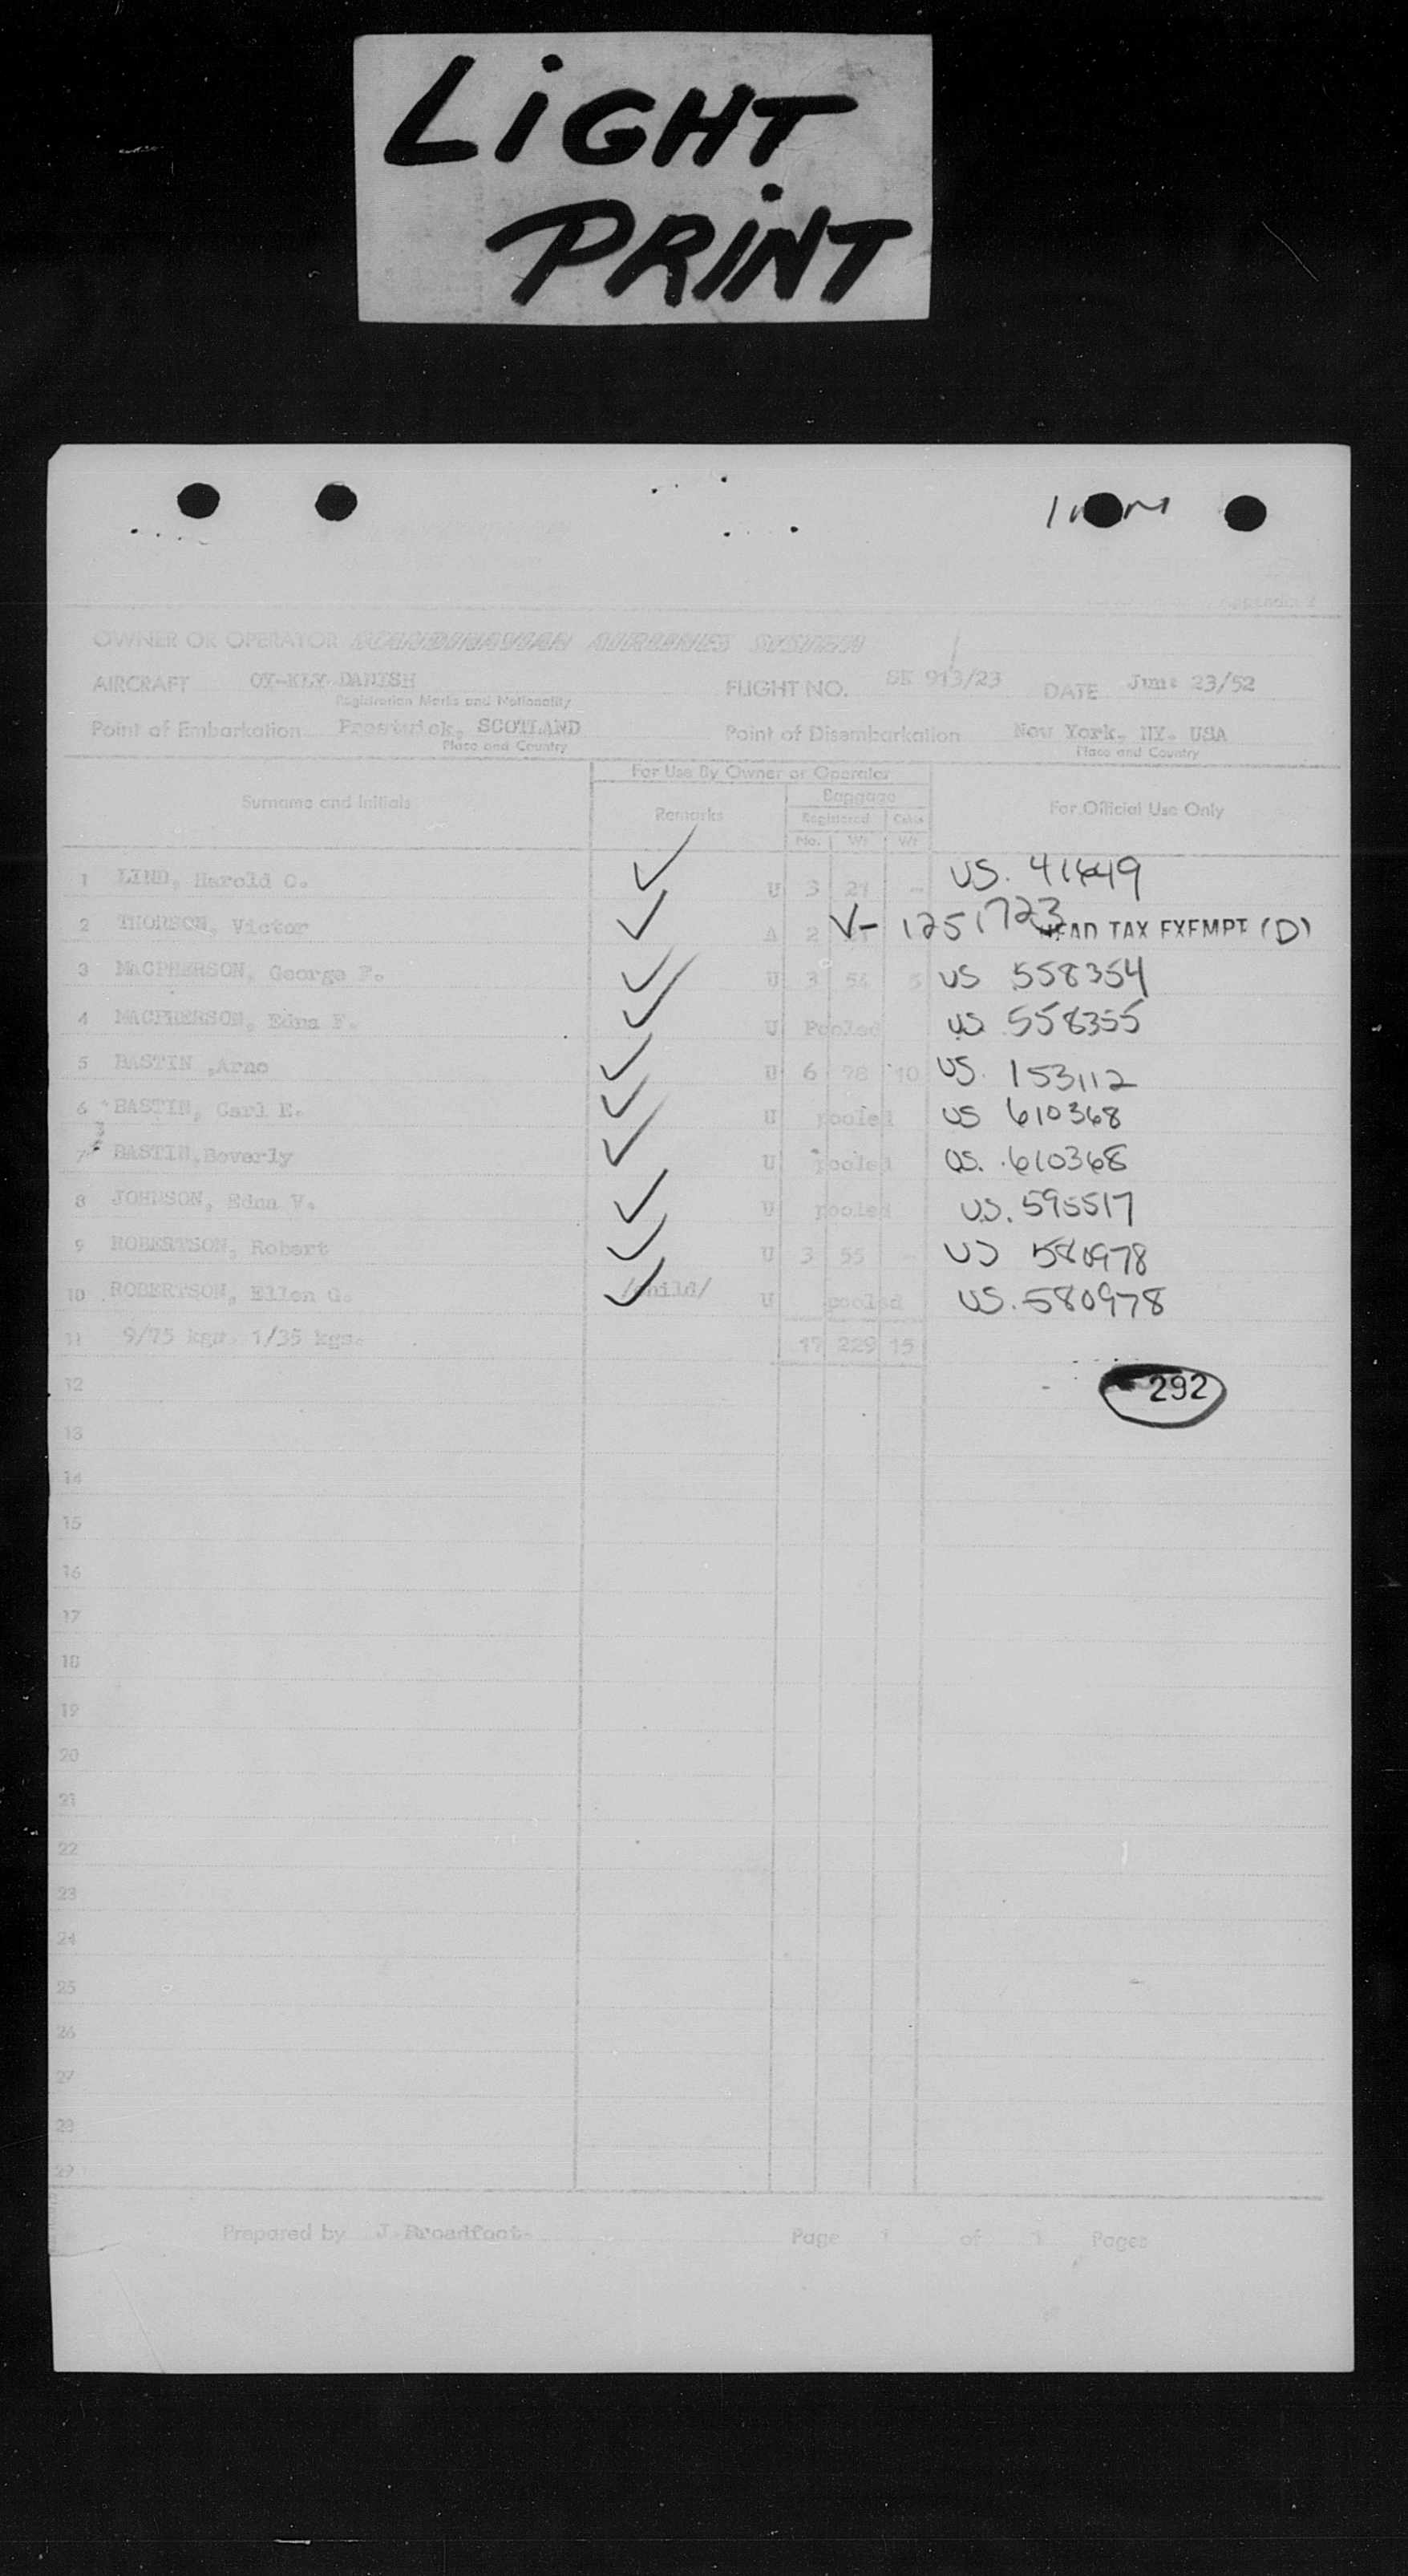 LIGHT
PRINT
OWNER OR OPERATOR SCANDINAVIAN AIRLINES SYSTEM
AIRCRAFT OY-KLY DANISH FLIGHT NO. SK 913/23 DATE June 23/52
Registration Marks and Nationality
Point of Embarkation Prestwick, SCOTLAND Point of Disembarkation New York, NY. USA
Place and Country Place and Country
For Use By Owner or Operator
Surname and Initials Remarks Baggage For Official Use Only
Registered Cabin
No. Wt Wt
1 LIND, Harold O. U 3 21 - US.
2 THORSON, Victor A 2 V- 1251723 HEAD TAX EXEMPT (D)
3 MACPHERSON, George F. U 3 54 5 US 558354
4 MACPHERSON, Edna F. U Pooled US 558355
5 BASTIN ,Arno U 6 78 10 US. 153112
6 BASTIN, Carl E. U pooled US 610368
7 BASTIN,Beverly U pooled US. 610368
8 JOHNSON, Edna V. U pooled US. 595517
9 ROBERTSON, Robert U 3 55 - US 580978
10 ROBERTSON, Ellen G. /child/ U pooled US. 580978
11 9/75 kgs. 1/35 kgs. 17 229 15
12 292
13
14
15
16
17
18
19
20
21
22
23
24
25
26
27
28
29
Prepared by J Broadfoot Page 1 of 1 Pages